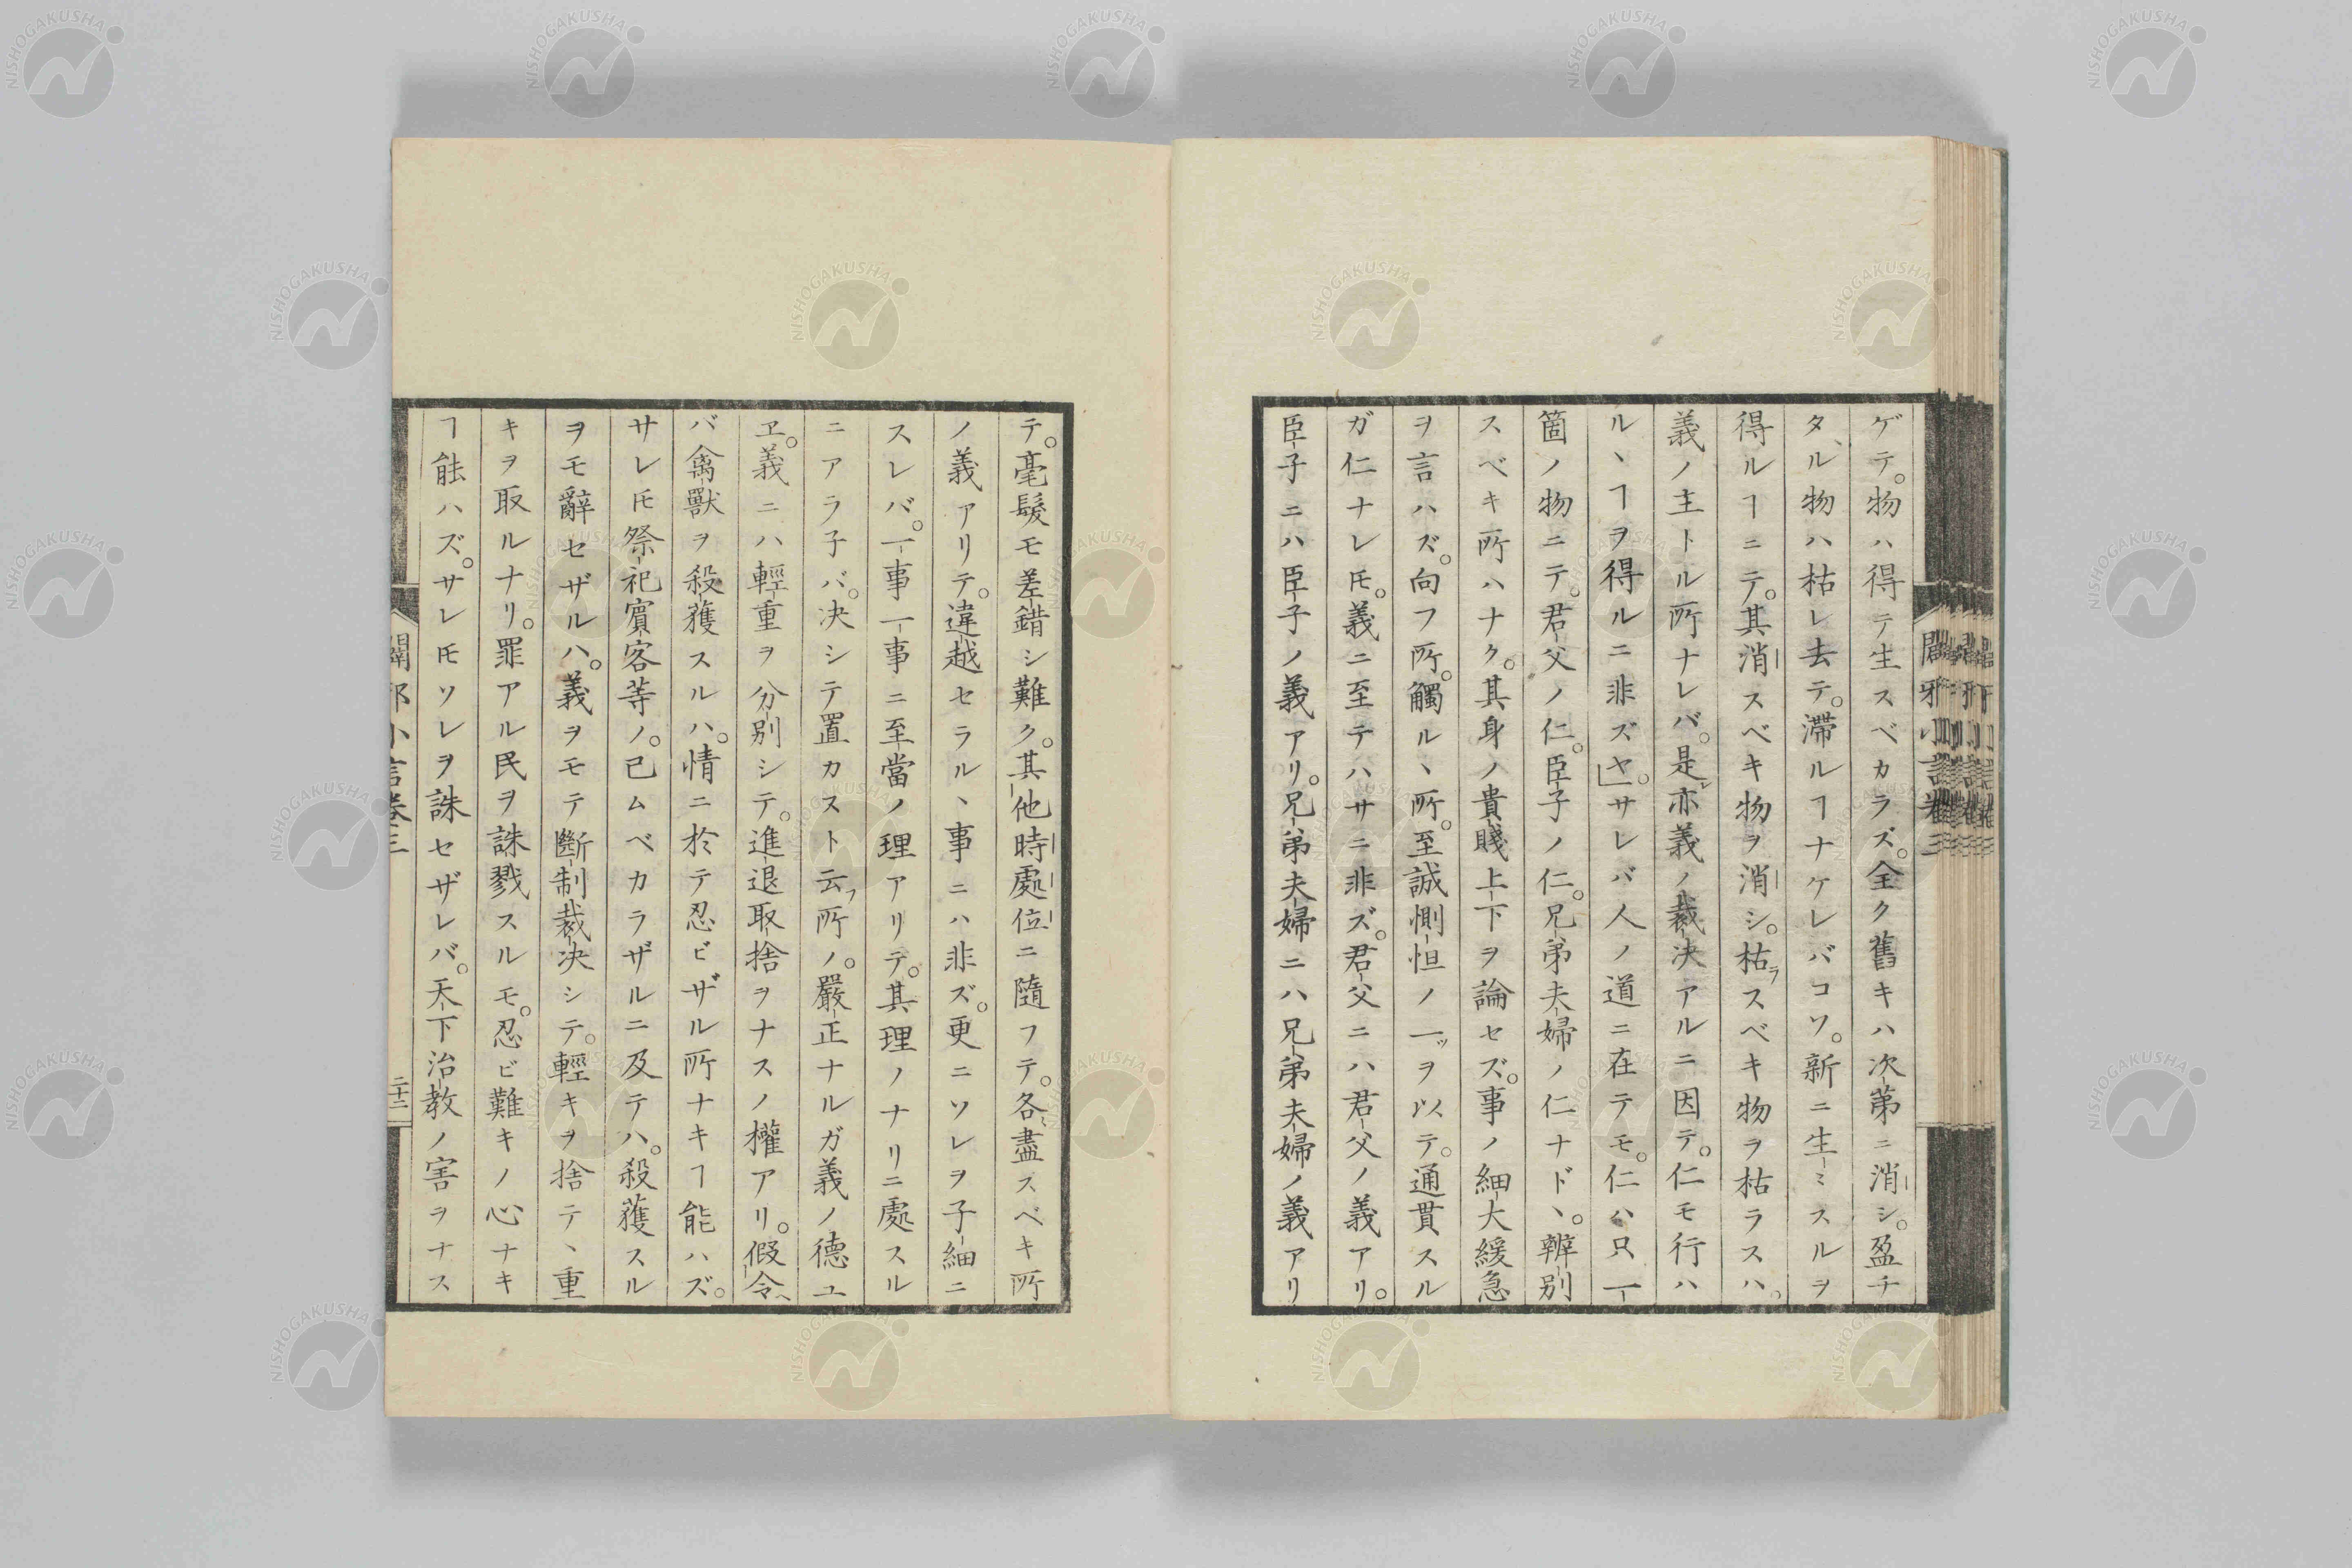 ゲテ。物ハ得テ生スベカラズ。全ク舊キハ次第ニ消シ。盈チ
タル物ハ枯レ去テ。滞ルヿナケレバコソ。新ニ生〻スルヲ
得ルヿニテ。其消スベキ物ヲ消シ。枯ラスベキ物ヲ枯ラスハ。
義ノ主トル所ナレバ。是レ亦義ノ裁決アルニ因テ。仁モ行ハ
ルヽヿヲ得ルニ非ズヤ」。サレバ人ノ道ニ在テモ。仁ハ只一
箇ノ物ニテ。君父ノ仁。臣子ノ仁。兄弟夫婦ノ仁ナドヽ。辨別
スベキ所ハナク。其身ノ貴賤上下ヲ論セズ。事ノ細大緩急
ヲ言ハズ。向フ所。觸ルヽ所。至誠惻怛ノ一ツヲ以テ。通貫スル
ガ仁ナレ𪜈。義ニ至テハサニ非ズ。君父ニハ君父ノ義アリ。
臣子ニハ臣子ノ義アリ。兄弟夫婦ニハ兄弟夫婦ノ義アリ
テ。毫髮モ差錯シ難ク。其他時處位ニ隨フテ。各〻盡スベキ所
ノ義アリテ。違越セラルヽ事ニハ非ズ。更ニソレヲ子細ニ
スレバ。一事一事ニ至當ノ理アリテ。其理ノナリニ處スル
ニアラ子バ。决シテ置カスト云フ所ノ。嚴正ナルガ義ノ德ユ
ヱ。義ニハ輕重ヲ分別シテ。進退取捨ヲナスノ權アリ。假令ヘ
バ禽獸ヲ殺獲スルハ。情ニ於テ忍ビザル所ナキヿ能ハズ。
サレ𪜈祭祀賓客等ノ。已ムベカラザルニ及テハ。殺獲スル
ヲモ辭セザルハ。義ヲモテ斷制裁决シテ。輕キヲ捨テヽ重
キヲ取ルナリ。罪アル民ヲ誅戮スルモ。忍ビ難キノ心ナキ
ヿ能ハズ。サレ𪜈ソレヲ誅セザレバ。天下治教ノ害ヲナス
闢邪小言卷三
二十二